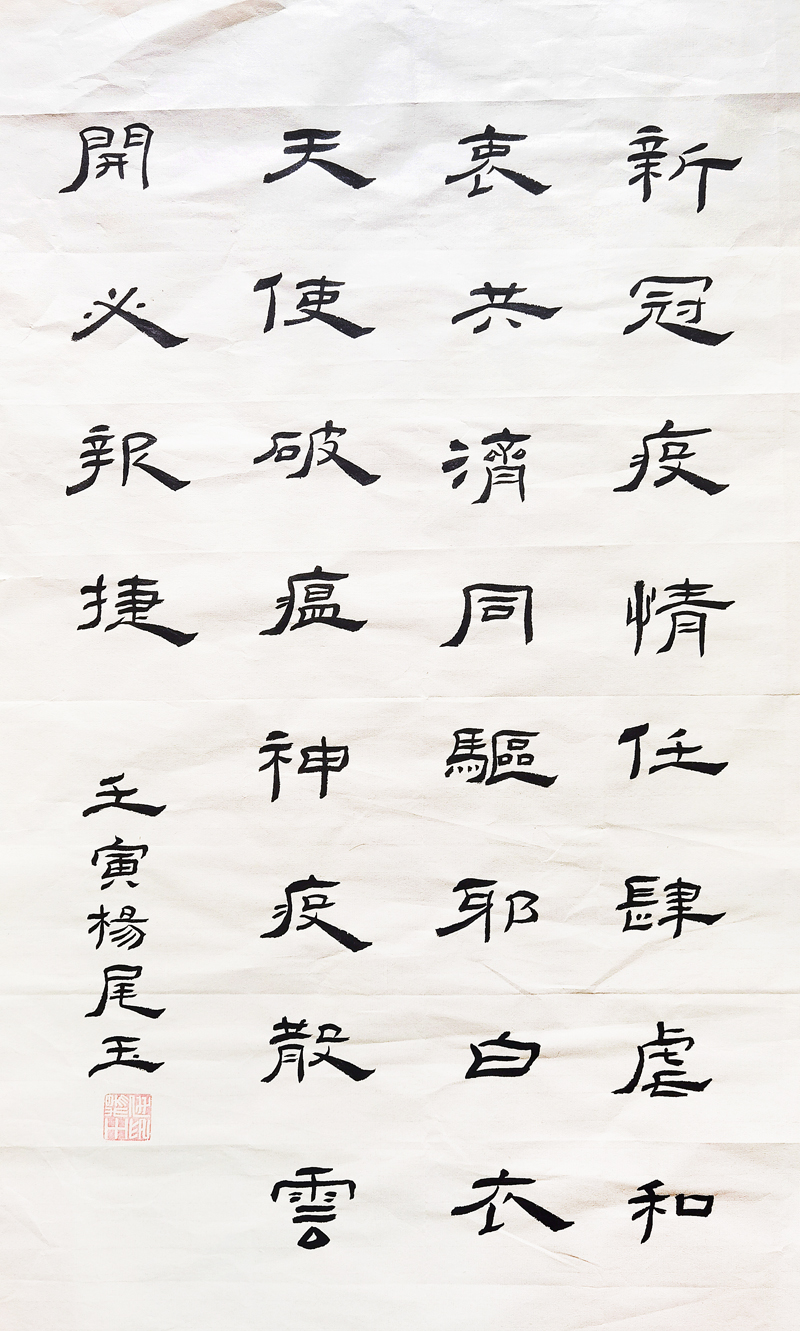 新冠疫情任肆虐和
衷共濟同驅邪白衣
天使破瘟神疫散雲
開必報捷
壬寅楊尾玉